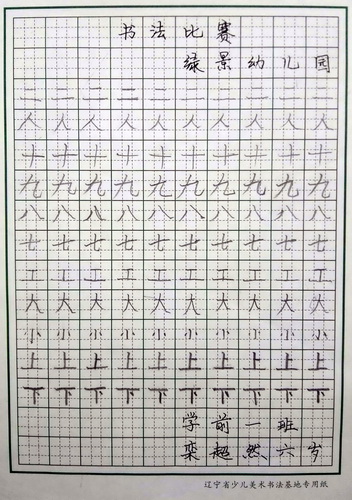 书法比赛
绿景幼儿园
二二二二二二二二二二
人人人人人人人人人人
十十十十十十十十十十
九九九九九九九九九九
八八八八八八八八八八
七七七七七七七七七七
工工工工工工工工工工
大大大大大大大大大大
小小小小小小小小小小
上上上上上上上上上上
下下下下下下下下下下
学前一班
栾超然六岁
辽宁省少儿美术书法基地专用纸